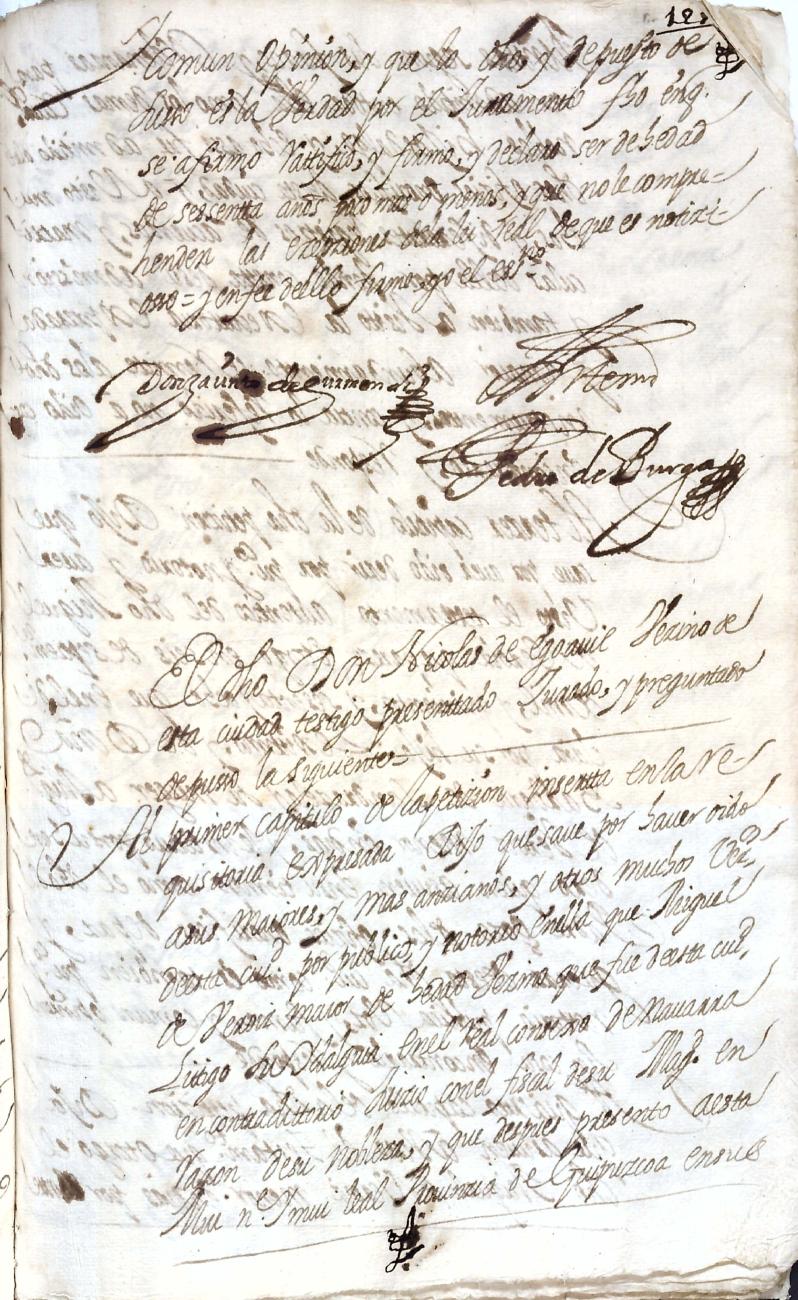 128
Y comun opinion, y que lo dho, y depuesto de
suso es la Verdad por el Juramento fho enq.
se afirmo Rattifico, y firmo, y declaro ser de hedad
de sessentta años poco mas o menos, y que no le compre-
henden las exsepciones de la lei Real de que es notizi-
osso = y en fee de ello firmo yo el essno
Antemi
Pedro de Burga
El dho Don Nicolas de Egoavil Vezino de
esta ciudad testigo presenttado Jurado, y preguntado
depuso la siguiente =
Al primer capitulo de la petizion insertta en la Re-
quisitoria expresada Dijo que save por haver oido
a sus maiores, y mas anzianos, y otros muchos Vezos
de esta ciud por publico, y notorio en ella que Miguel
de Veroiz maior de hedad Vezino que fue de esta ciud,
Litigo su Ydalguia en el Real consexo de Navarra
en contradittorio Juicio con el fiscal de su Magd. en
Razon de su Nobleza, y que despues presento a esta
Mui n.e Y mui leal Provinzia de Guipuzcoa en sus